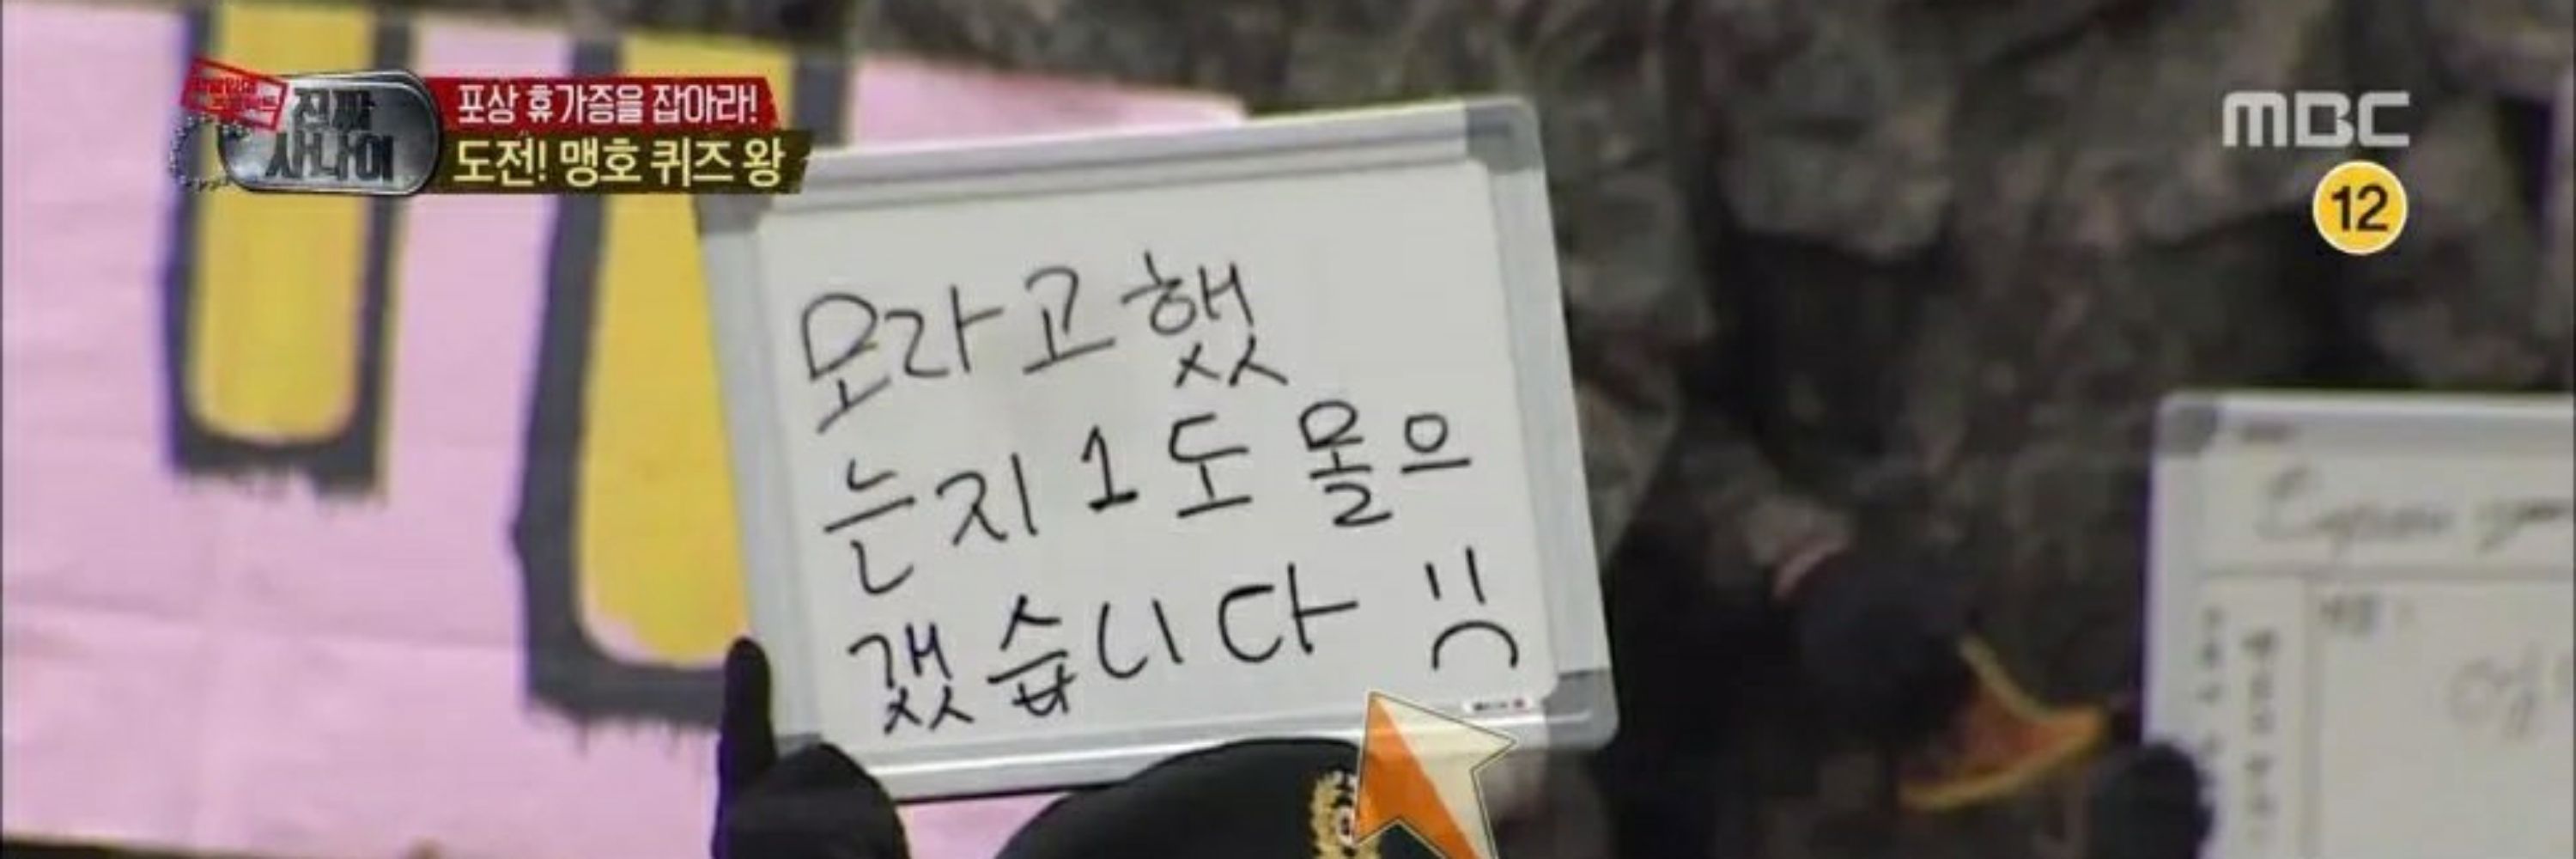 진짜
사나이
포상 휴가증을 잡아라!
도전! 맹호 퀴즈 왕
MBC
12
모라고했
는지 1도 몰으
겠습니다 :(